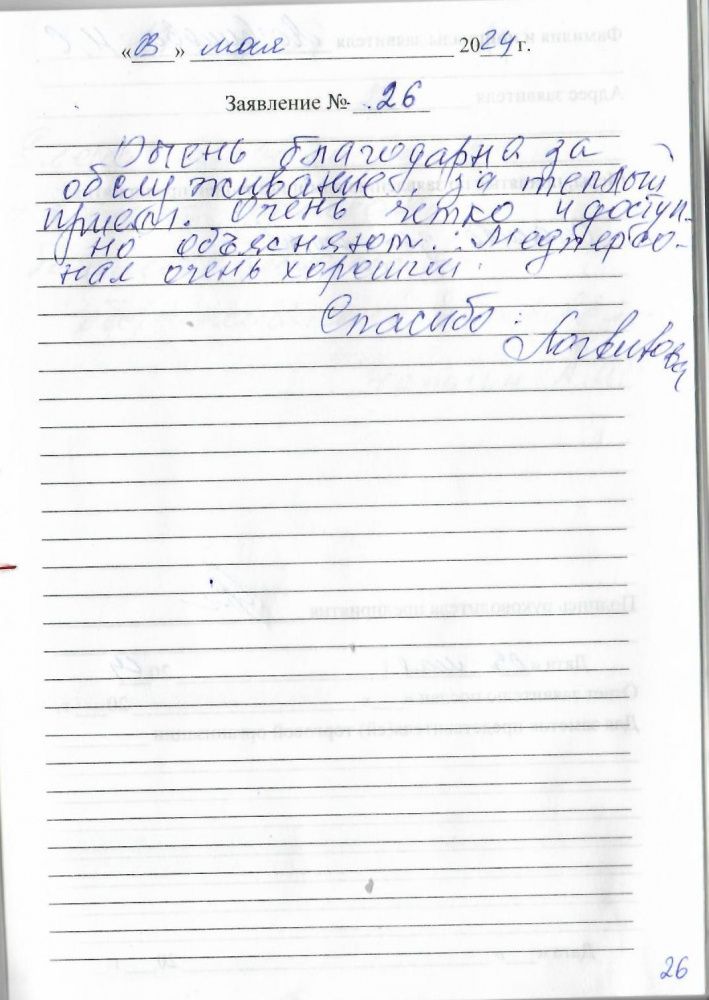 « » мая 2024 г.
Заявление № 26
Очень благодарна за
обслуживание, за теплый
прием. Очень четко и доступ-
но объясняют. Медперсо-
нал очень хороший.
Спасибо:
26